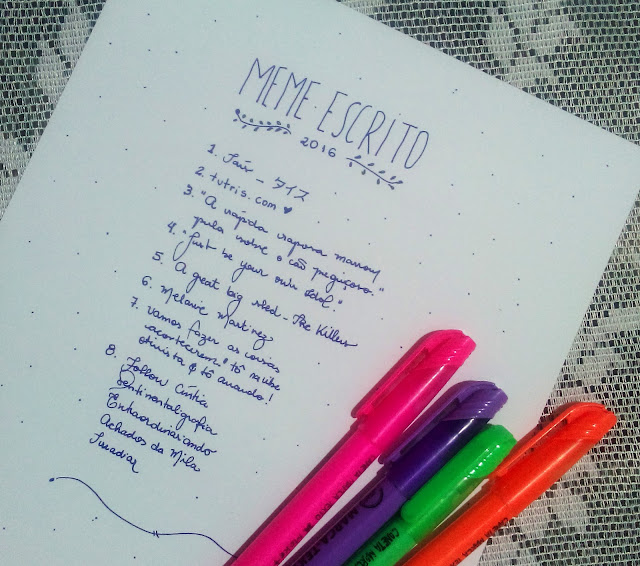 MEME·ESCRITO
2016
1. Taís - タイス
2. tutris.com ♥
3. "A rápida raposa marrom
pula sobre o cão preguiçoso."
4. "Just be your own idol."
5. A great big sled - The Killers
6. Melanie Martinez
7. vamos fazer as coisas
acontecerem! tô na vibe
otimista & tô amando!
8. Follow Cíntia
Sentimentalgrafia
Extraordinariando
Achados da Mila
MARCA TEX
CANETA MARCA